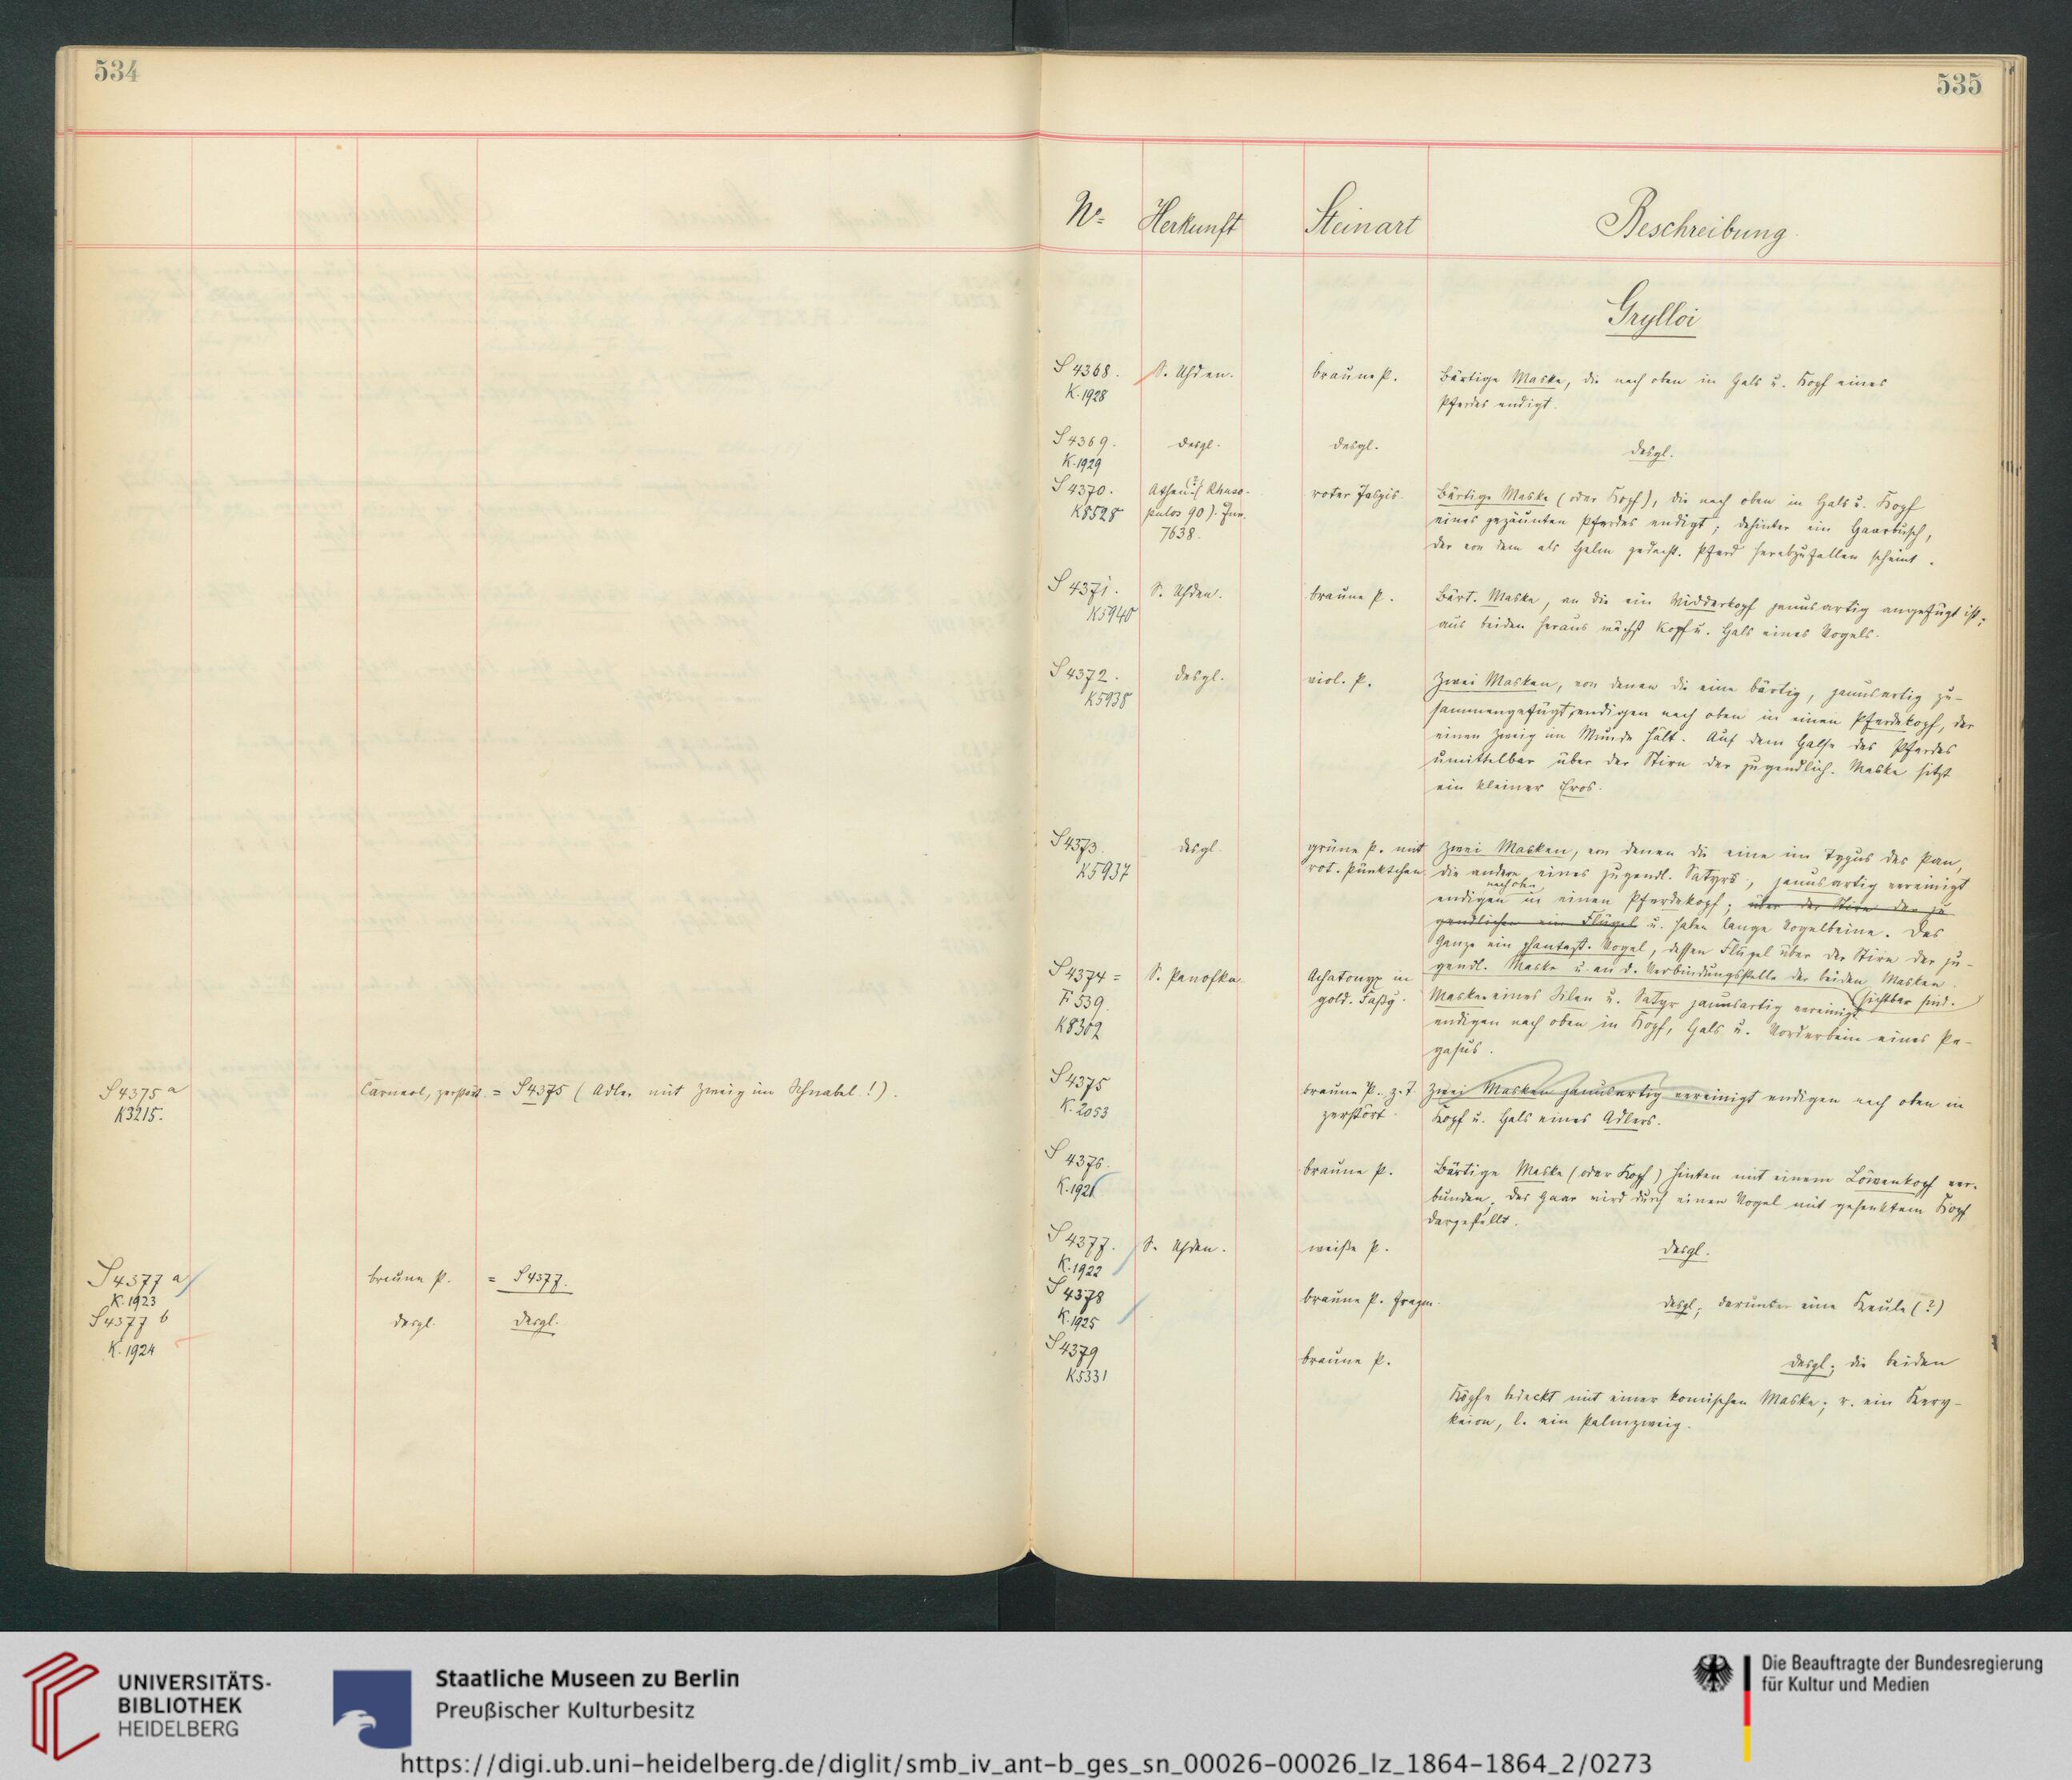 534
S 4375 a
K3215.
Carneol, zerstört. = S 4375 (Adler mit Zweig im Schnabel!).
S 4377 a
K. 1923
braune P. = S 4377.
S 4377 b
K. 1924
desgl. desgl.
535
No Herkunft Steinart Beschreibung
Grylloi
S 4368. S. Uhden. braune P. Bärtige Maske, die nach oben in Hals u. Kopf eines
K. 1928 Pferdes endigt.
S 4369. desgl. desgl. desgl.
K. 1929
S 4370. Athen (?) (Rhuso- roter Jaspis. Bärtige Maske (oder Kopf), die nach oben in Hals u. Kopf
K8528 pulos 90). Inv. eines gezäumten Pferdes endigt; dahinter ein Haarbusch,
7638. der von dem als Helm gedacht. Pferd herabzufallen scheint.
S 4371. S. Uhden. braune P. Bärt. Maske, an die ein Widderkopf janusartig angefügt ist;
K5940 aus beiden heraus wächst Kopf u. Hals eines Vogels.
S 4372. desgl. viol. P. Zwei Masken, von denen die eine bärtig, janusartig zu-
K5938 sammengefügt, endigen nach oben in einen Pferdekopf, der
einen Zweig im Munde hält. Auf dem Halse des Pferdes
unmittelbar über der Stirn der jugendlich. Maske sitzt
ein kleiner Eros.
S 4373. desgl. grüne P. mit Zwei Masken, von denen die eine im Typus des Pan,
K5937 rot. Pünktchen die andere eines jugendl. Satyrs, janusartig vereinigt
endigen nach oben in einen Pferdekopf; über der Stirn der ju
gendlichen ein Flügel u. haben lange Vogelbeine. Das
Ganze ein phantast. Vogel, dessen Flügel über der Stirn der ju-
gendl. Maske u. an d. Verbindungsstelle der beiden Masken
(sichtbar sind.)
S 4374 = S. Panofka Achatonyx in Maske eines Silen u. Satyr janusartig vereinigt
F 539. gold. Faßg. endigen nach oben in Kopf, Hals u. Vorderbein eines Pe-
K8302 gasus.
S 4375 braune P. z. T. Zwei Masken janusartig vereinigt endigen nach oben in
K. 2053 zerstört. Kopf u. Hals eines Adlers.
S 4376. braune P. Bärtige Maske (oder Kopf) hinten mit einem Löwenkopf ver-
K. 1921 bunden. Das Haar wird durch einen Vogel mit gesenktem Kopf
dargestellt.
S 4377. S. Uhden. weiße P. desgl.
K. 1922
S 4378 braune P. Fragm. desgl.; darunter eine Keule (?)
K. 1925
S 4379 braune P. desgl.; die beiden
K5331 Köpfe bedeckt mit einer komischen Maske; r. ein Kery-
keion, l. ein Palmzweig.
UNIVERSITÄTS-
BIBLIOTHEK
HEIDELBERG
Staatliche Museen zu Berlin
Preußischer Kulturbesitz
Die Beauftragte der Bundesregierung
für Kultur und Medien
https://digi.ub.uni-heidelberg.de/diglit/smb_iv_ant-b_ges_sn_00026-00026_lz_1864-1864_2/0273